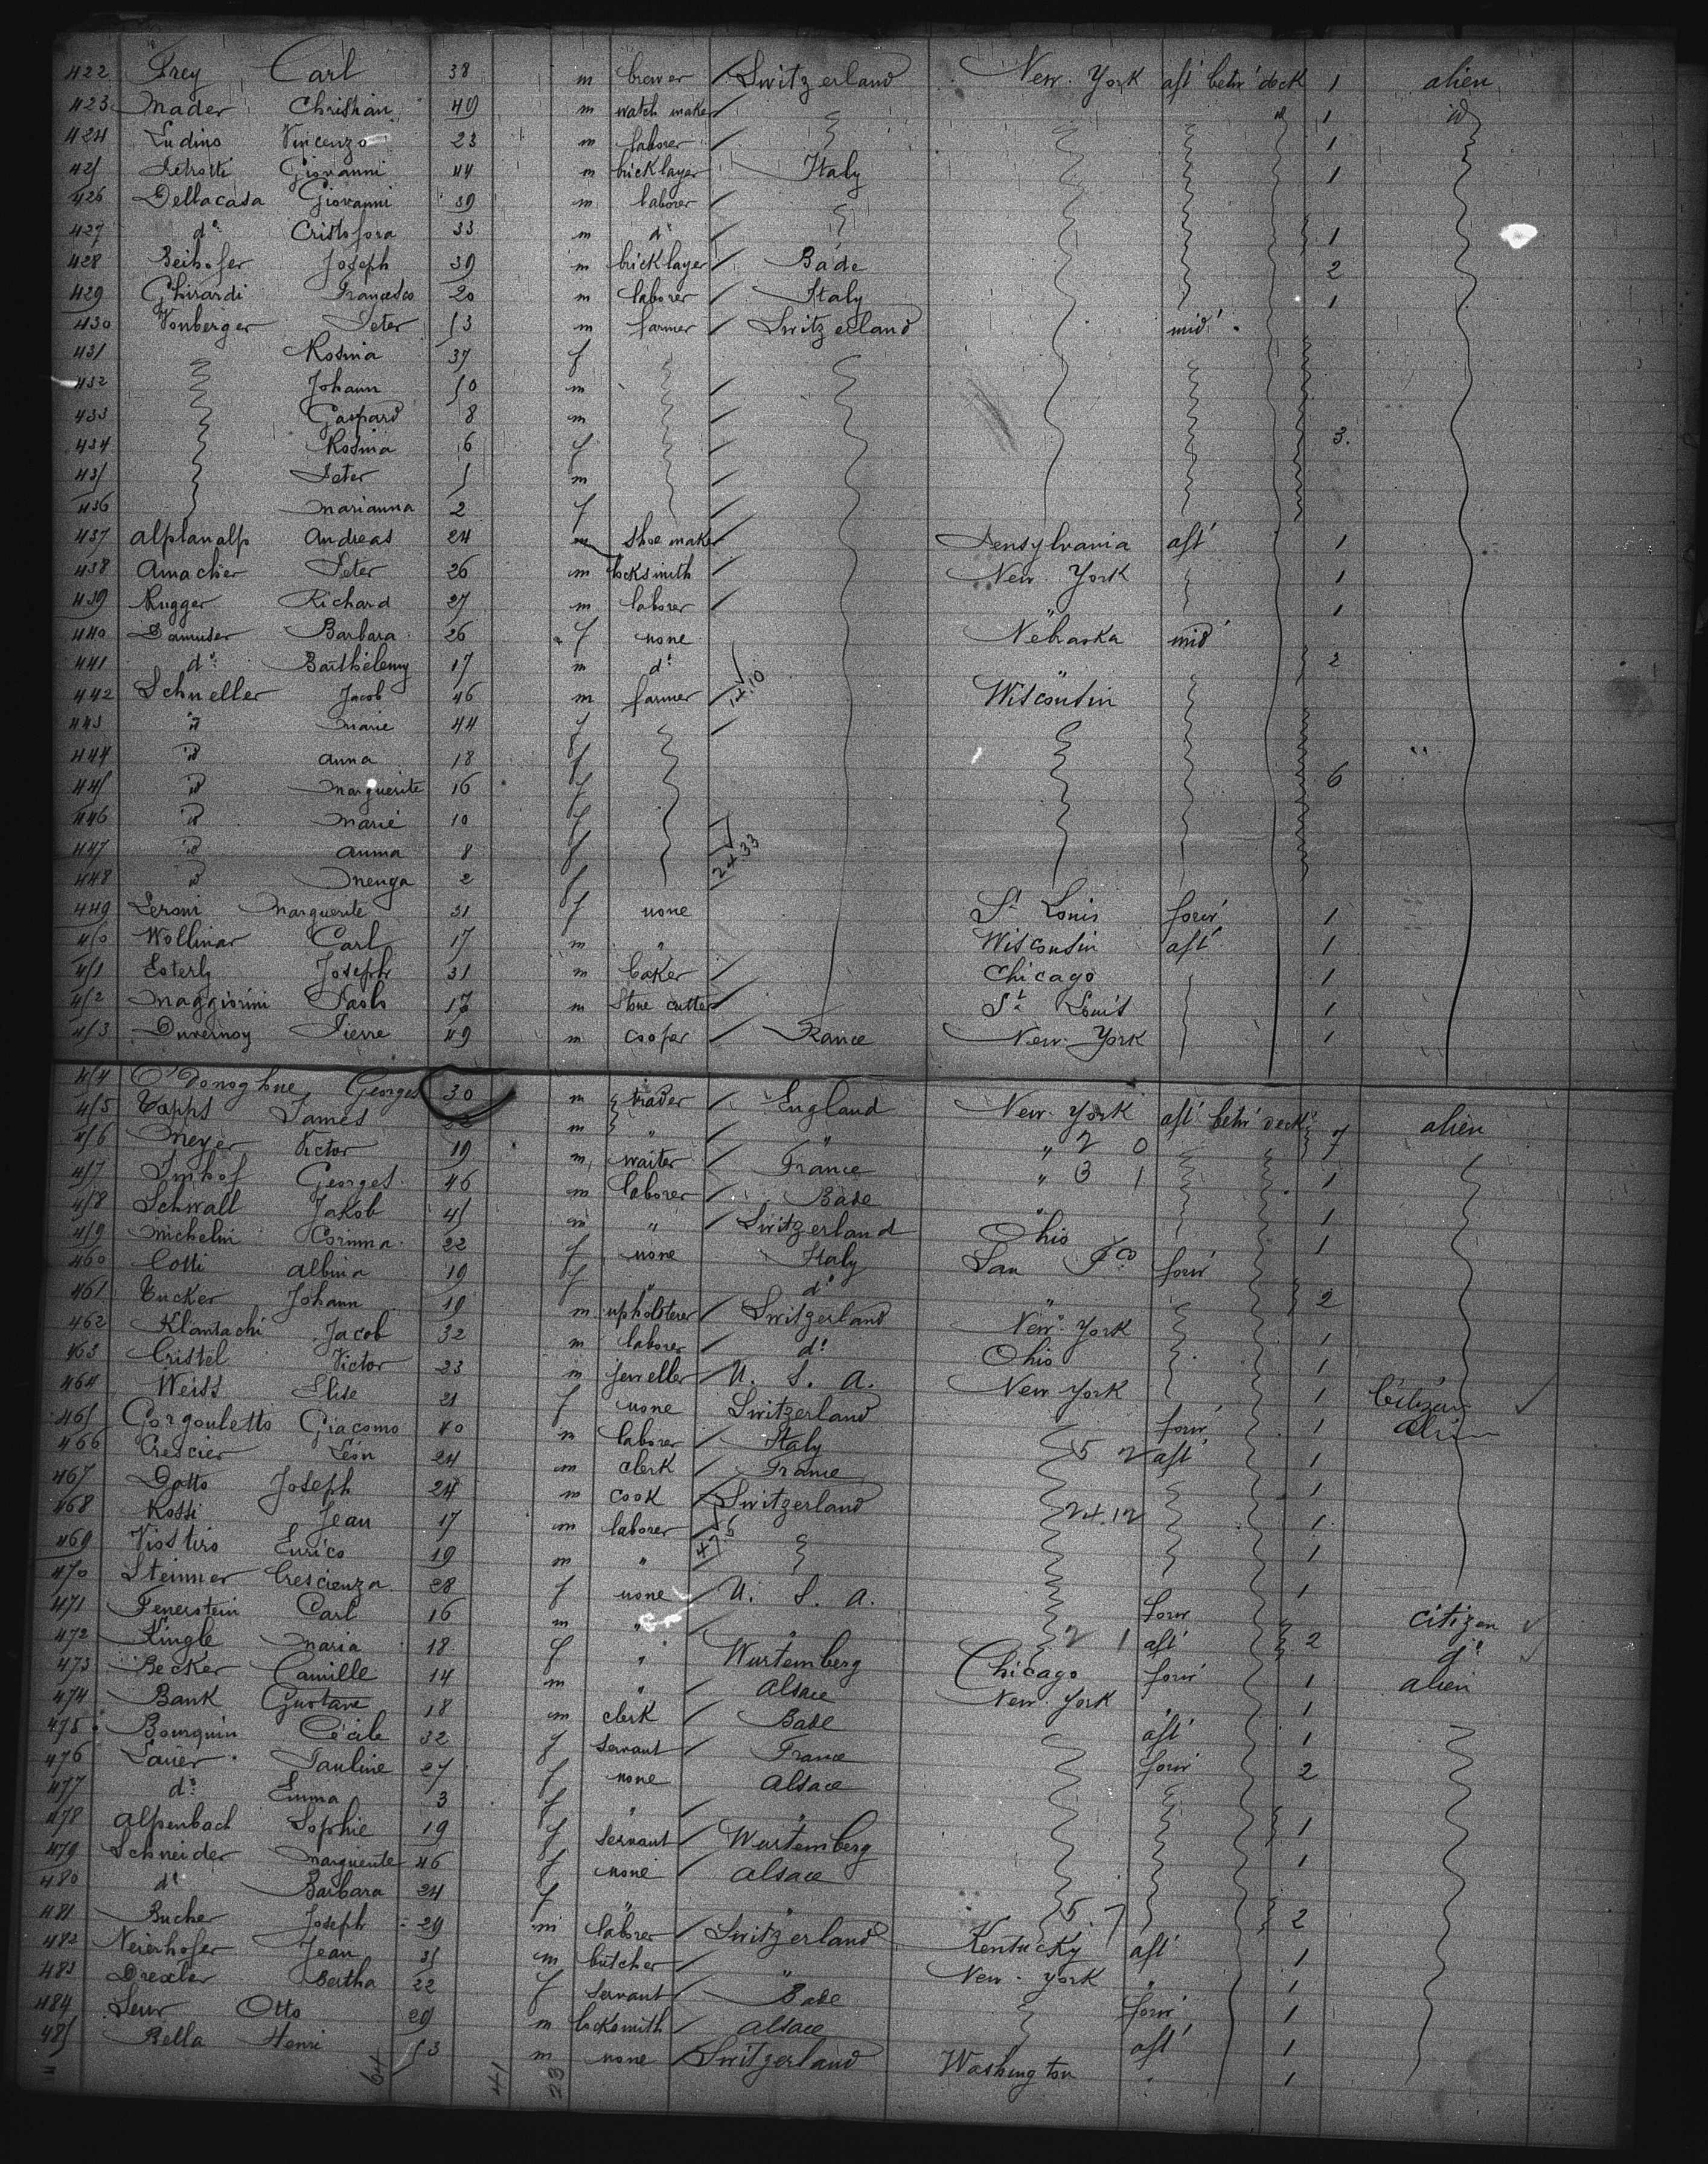 422 Frey Carl 38 m brewer Switzerland New-York aft betw deck 1 alien
423 Mader Christian 49 m watch maker " 1 id
424 Ludino Vincenzo 23 m laborer 1
425 Giovanni 44 m bricklayer Italy 1
426 Dellacasa Giovanni 39 m laborer
427 d° Cristofora 33 m d° 1
428 Beihofer Joseph 39 m bricklayer Bade 2
429 Ghirardi Francesco 20 m laborer Italy 1
430 Vonberger Peter 53 m farmer Switzerland mid
431 Rosina 37 f
432 Johann 10 m
433 Gaspard 8 m
434 Rosina 6 f 3
435 Peter 5 m
436 Marianna 2 f
437 Alplanalp Andreas 24 m shoe maker Pensylvania aft 1
438 Amacher Peter 26 m locksmith New-York 1
439 Rugger Richard 27 m laborer " 1
440 Barbara 26 f none Nebraska mid
441 d° Barthélemy 17 m d° " 2
442 Schneller Jacob 46 m farmer Wisconsin
443 " Marie 44 f
444 " Anna 18 f
445 " Marguerite 16 f 6
446 " Marie 10 f
447 " Anna 8 f
448 " Menga 2 f
449 Marguerite 31 f none St Louis forw 1
450 Wollinar Carl 17 m " Wisconsin aft 1
451 Esterly Joseph 31 m baker Chicago 1
452 Maggiorini Paolo 17 m stone cutter St Louis 1
453 Duvernoy Pierre 49 m cooper France New-York 1
454 O'Donoghue Georges 30 m trader England New-York aft betw deck alien
455 Tapps James m " " " 2 0 7
456 Meyer Victor 19 m waiter France " 3 1 1
457 Imhof Georges 46 m laborer Bade "
458 Schwall Jakob 45 m " Switzerland Ohio 1
459 Michelin Corinna 22 f none Italy San F^co forw 1
460 Cotti Albina 19 f " d° " 2
461 Tucker Johann 19 m upholsterer Switzerland New-York
462 Jacob 32 m laborer d° Ohio 1
463 Cristel Victor 23 m jeweller U. S. A. New York 1 Citizen
464 Weiss Elise 21 f none Switzerland forw 1 alien
465 Gorgouletto Giacomo 40 m laborer Italy 5 2 aft 1
466 Crescier Léon 24 m clerk France 1
467 Dotto Joseph 24 m cook Switzerland 24.12 1
468 Rossi Jean 17 m laborer 1
469 Enrico 19 m "
470 Steinner Crescienza 28 f none U. S. A. forw 1 citizen
471 Fenerstein Carl 16 m " " 2 1 aft 2 d°
472 Kingle Maria 18 f " Wurtemberg Chicago forw 1 alien
473 Becker Camille 14 m " Alsace New-York " 1
474 Bank Gustave 18 m clerk Bade aft 1
475 Bourquin Cécile 32 f servant France forw 2
476 Lauer Pauline 27 f none Alsace
477 d° Emma 3 f " "
478 Alpenbach Sophie 19 f servant Wurtemberg 1
479 Schneider Marguerite 46 f none Alsace 1
480 d° Barbara 24 f " " 5 7 2
481 Bucher Joseph 29 m laborer Switzerland Kentucky aft 1
482 Neierhofer Jean 35 m butcher " New-York " 1
483 Drexler Bertha 22 f servant Bade forw 1
484 Otto 29 m locksmith Alsace aft 1
485 Bella Henri 53 m none Switzerland Washington " 1
64 41 23